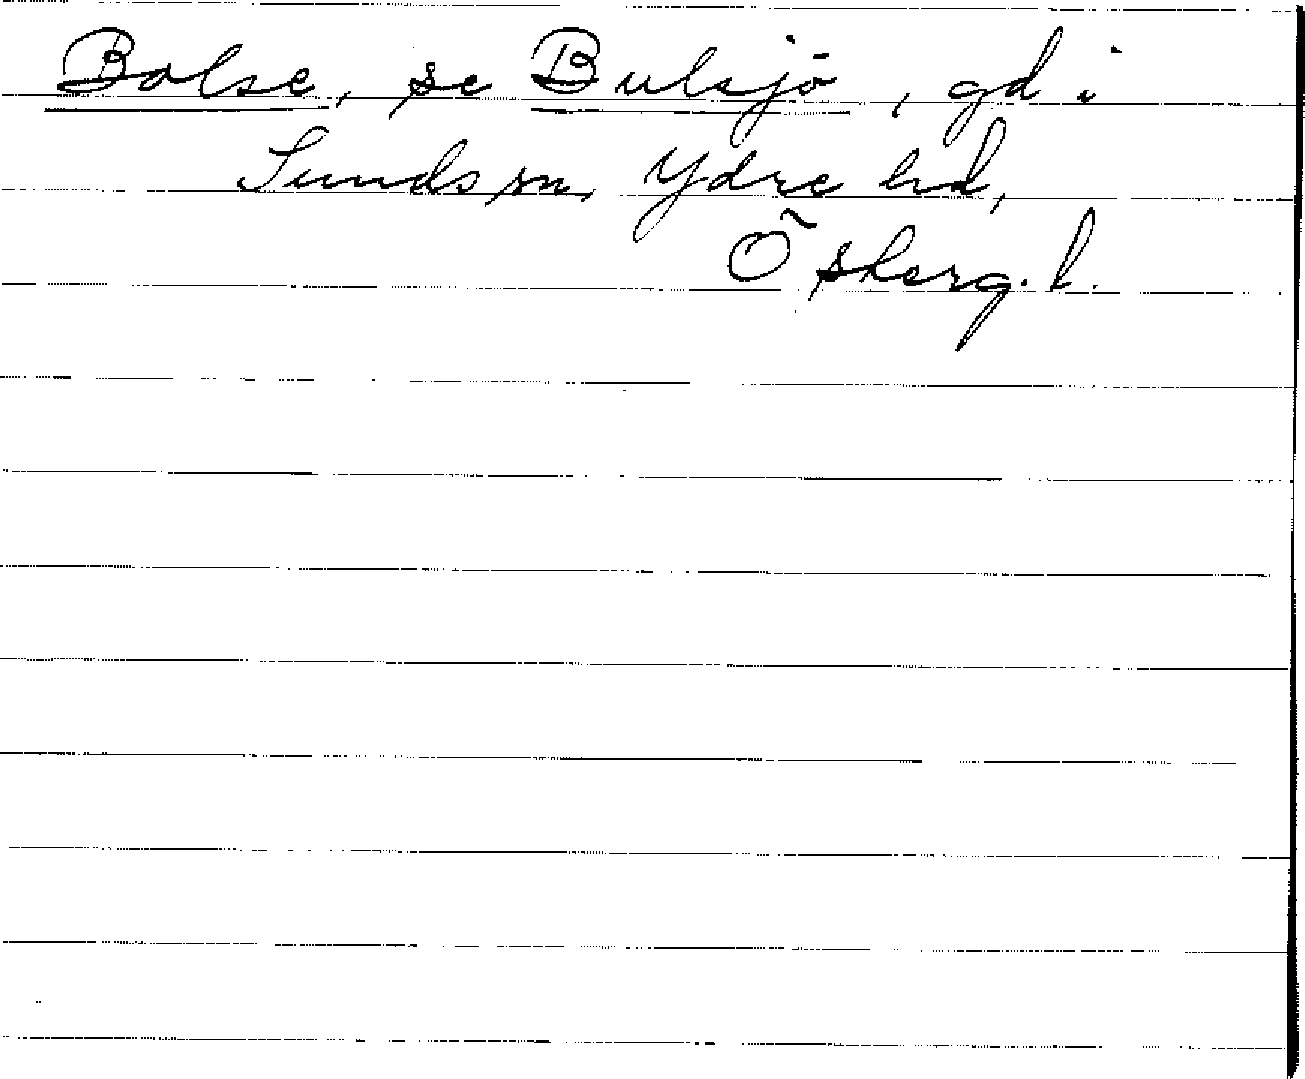 Bolse, se Bulsjö, gd i
Sunds sn, Ydre hd,
Östergl.